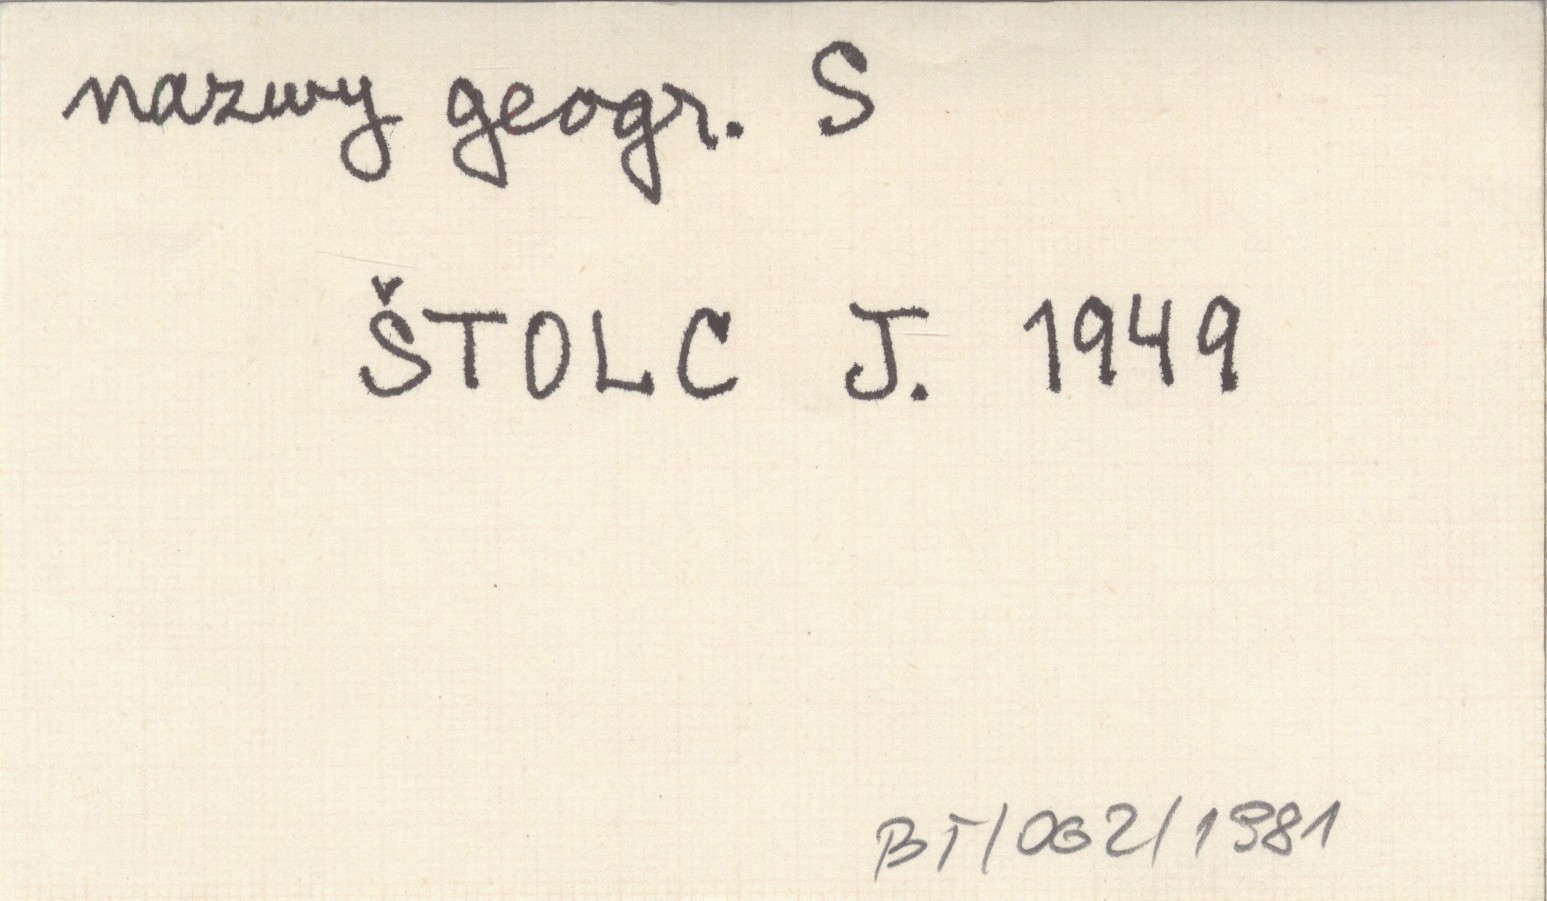 nazwy geogr. S
ŠTOLC J. 1949
BT/OG2/1981